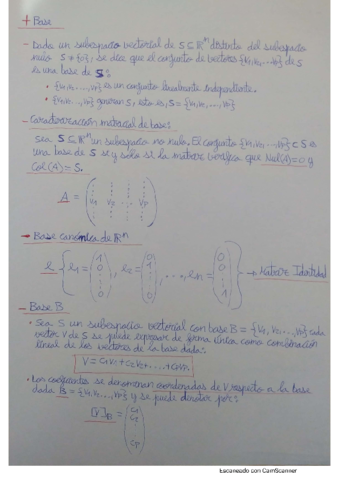 + Base
- Dada un subespacio vectorial de S ⊆ ℝⁿ distinta del subespacio
nulo S ≠ {0}, se dice que el conjunto de vectores {V₁,V₂,...,Vp} de S
es una base de S:
• {V₁,V₂,...,Vp} es un conjunto linealmente independiente.
• {V₁,V₂,...,Vp} generan S, esto es, S = {V₁,V₂,...,Vp}
- Caracterización matricial de base:
Sea S ⊆ ℝⁿ un subespacio no nulo. El conjunto {V₁,V₂,...,Vp} ⊂ S es
una base de S si y solo si la matriz verifica que Nul(A)=0 y
Col(A) = S.
A = ( V₁ Vp ... Vp )
→ Base canónica de ℝⁿ
{ e₁ = (1 0 : 0), e₂ = (0 1 : 0), ..., eₙ = (0 0 : 1) } → Matriz Identidad
- Base B
• Sea S un subespacio vectorial con base B = {V₁,V₂,...,Vp} cada
vector V de S se puede expresar de forma única como combinación
lineal de los vectores de la base dada:
V = C₁V₁ + C₂V₂ + ... + CpVp
• Los coeficientes se denominan coordenadas de V respecto a la base
dada B = {V₁,V₂,...,Vp} y se puede denotar por:
[V]B = (C₁ C₂ : Cp)
Escaneado con CamScanner